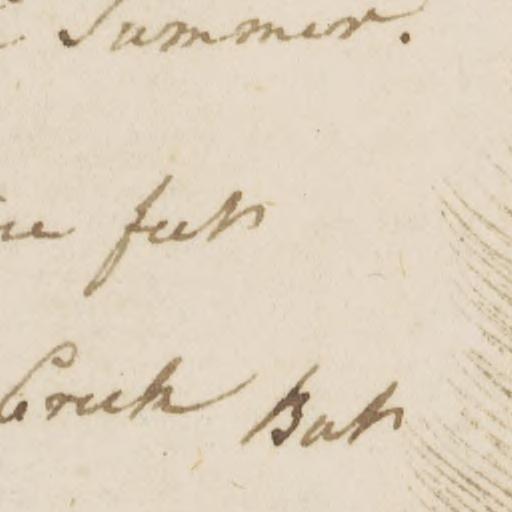 Summer.
feet
Creek Bat